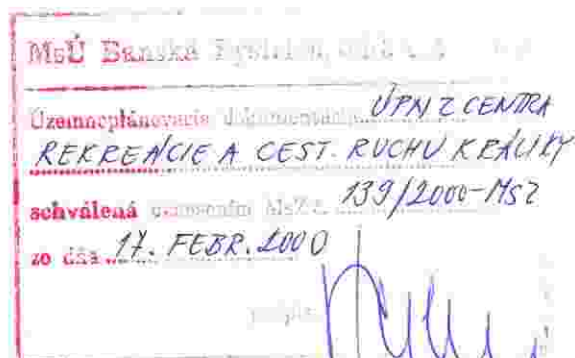 MsÚ Banská Bystrica
Územnoplánovacia dokumentácia ÚPN Z CENTRA
REKREÁCIE A CEST. RUCHU KRÁLIKY
schválená uznesením MsZ č. 139/2000-MSZ
zo dňa 17. FEBR. 2000